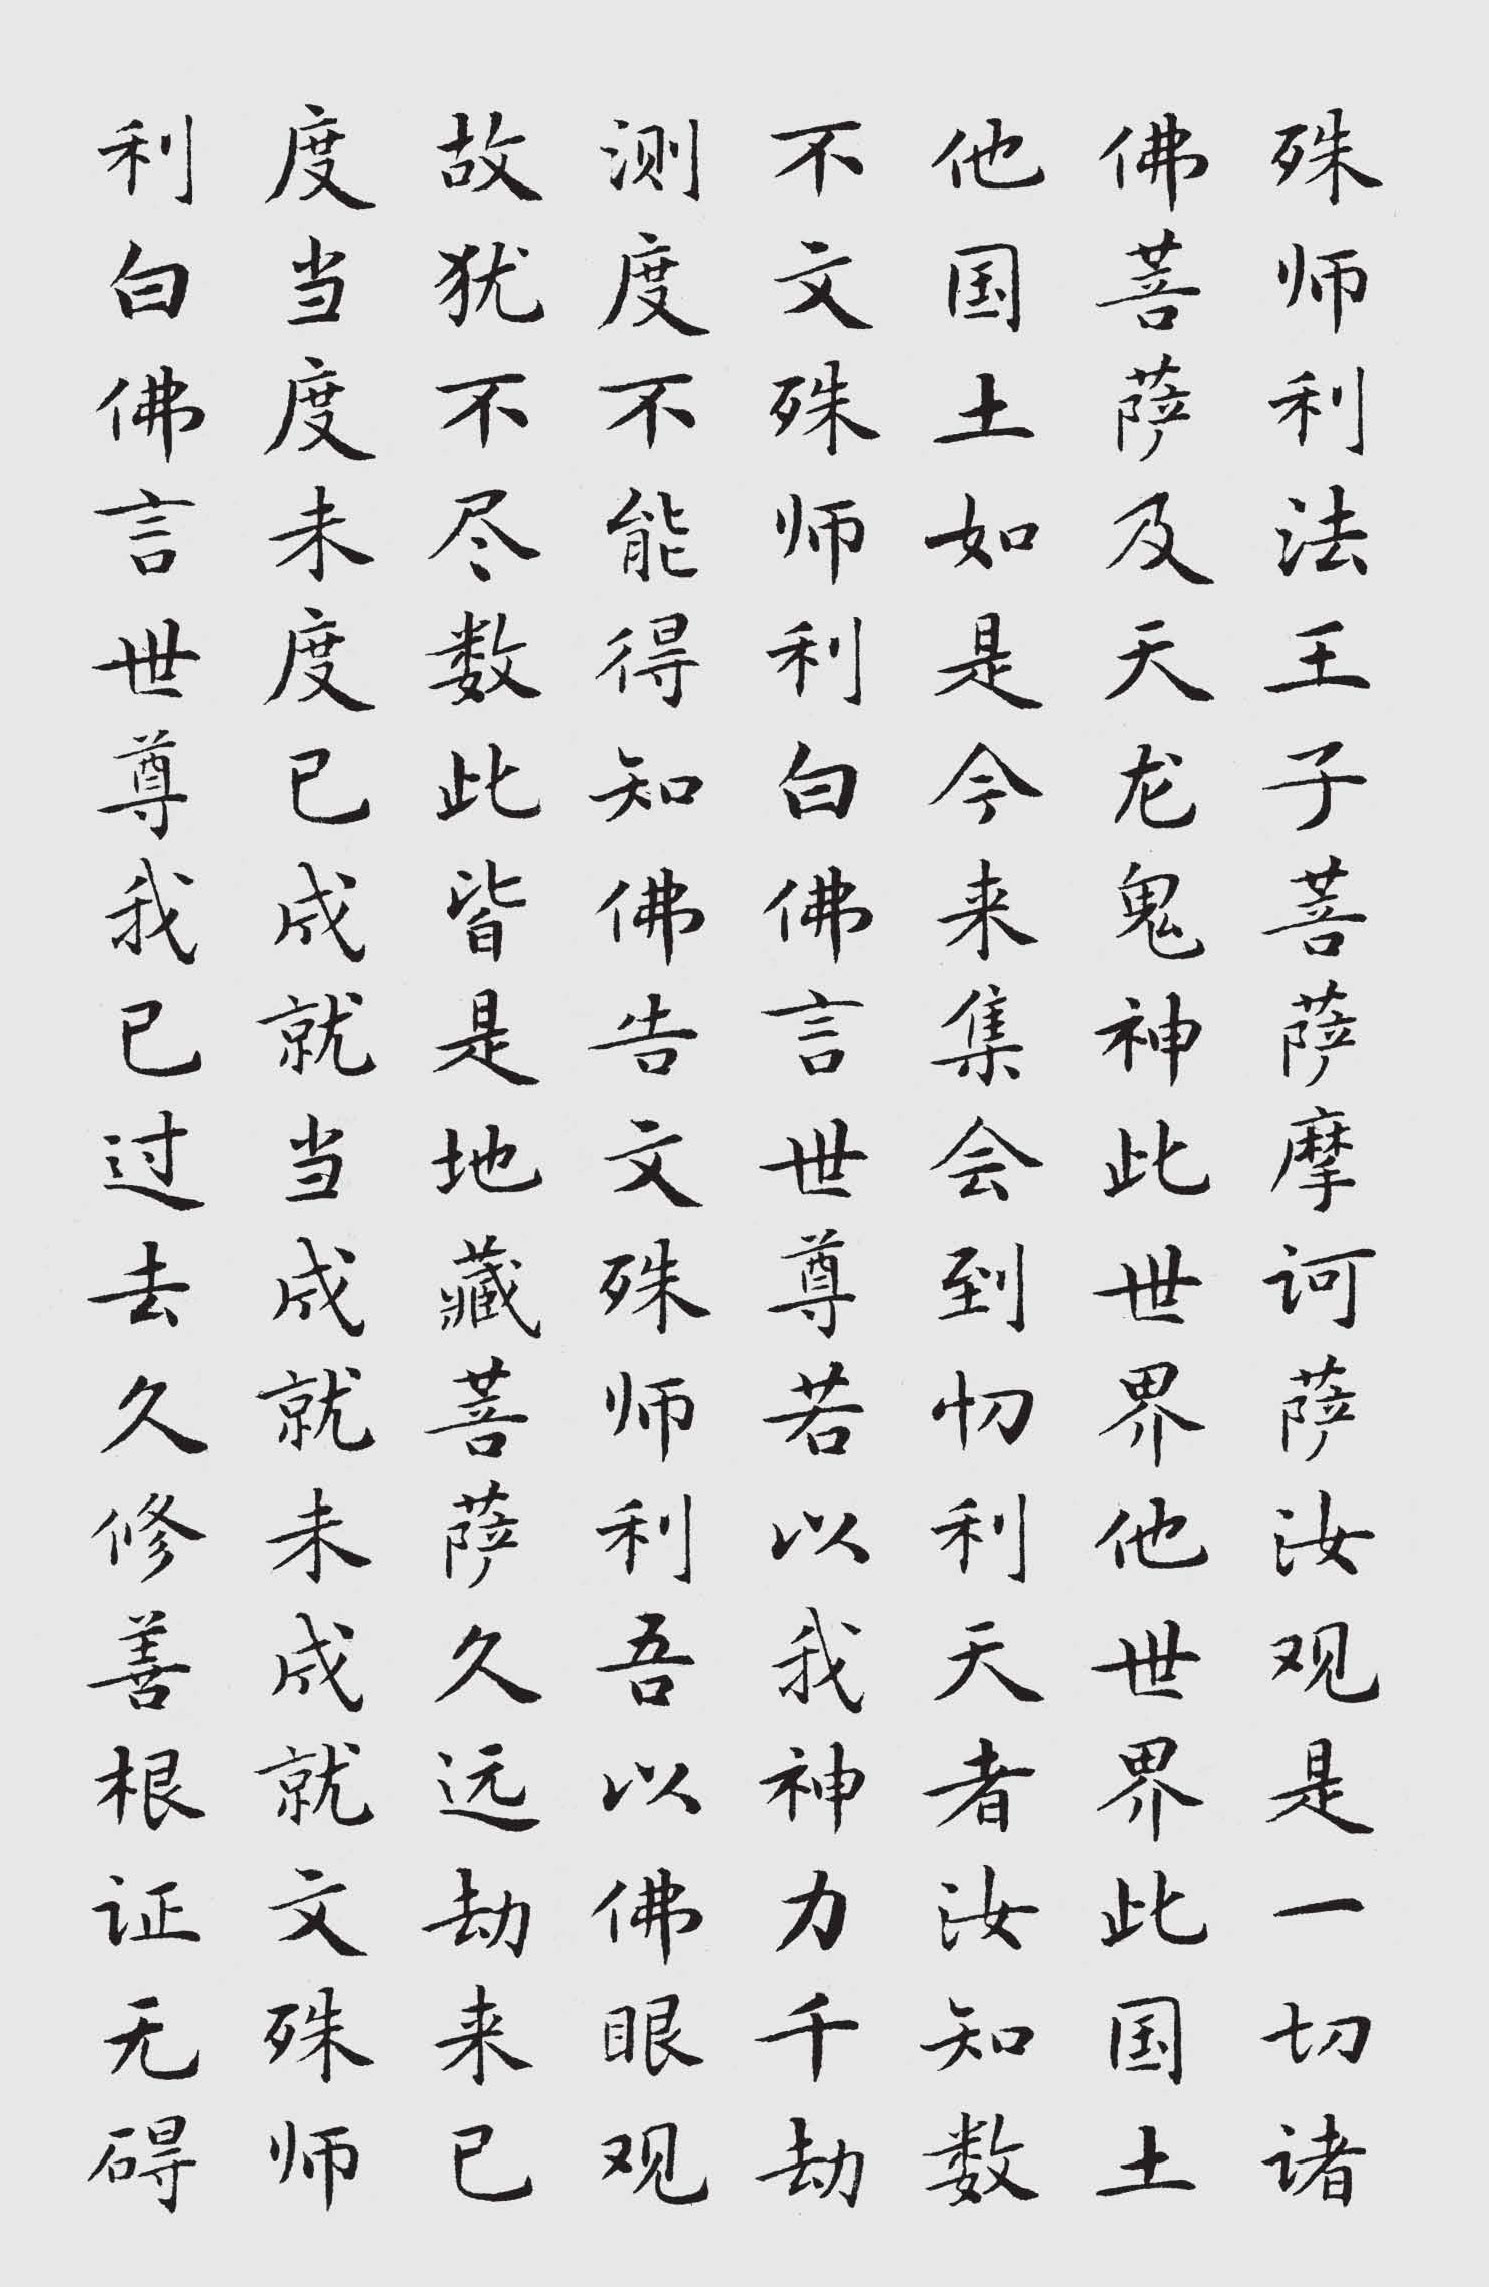 殊师利法王子菩萨摩诃萨汝观是一切诸
佛菩萨及天龙鬼神此世界他世界此国土
他国土如是今来集会到忉利天者汝知数
不文殊师利白佛言世尊若以我神力千劫
测度不能得知佛告文殊师利吾以佛眼观
故犹不尽数此皆是地藏菩萨久远劫来已
度当度未度已成就当成就未成就文殊师
利白佛言世尊我已过去久修善根证无碍